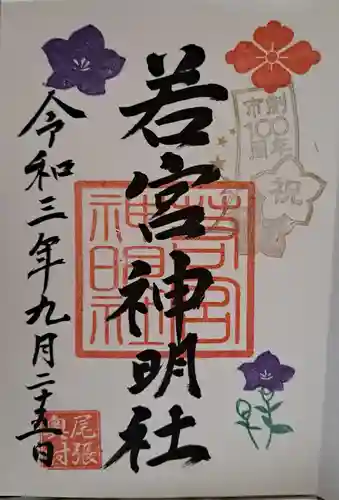 市制
100
周年
祝
若宮神明社
若宮
神明社
令和三年九月二十五日
尾張
奥村